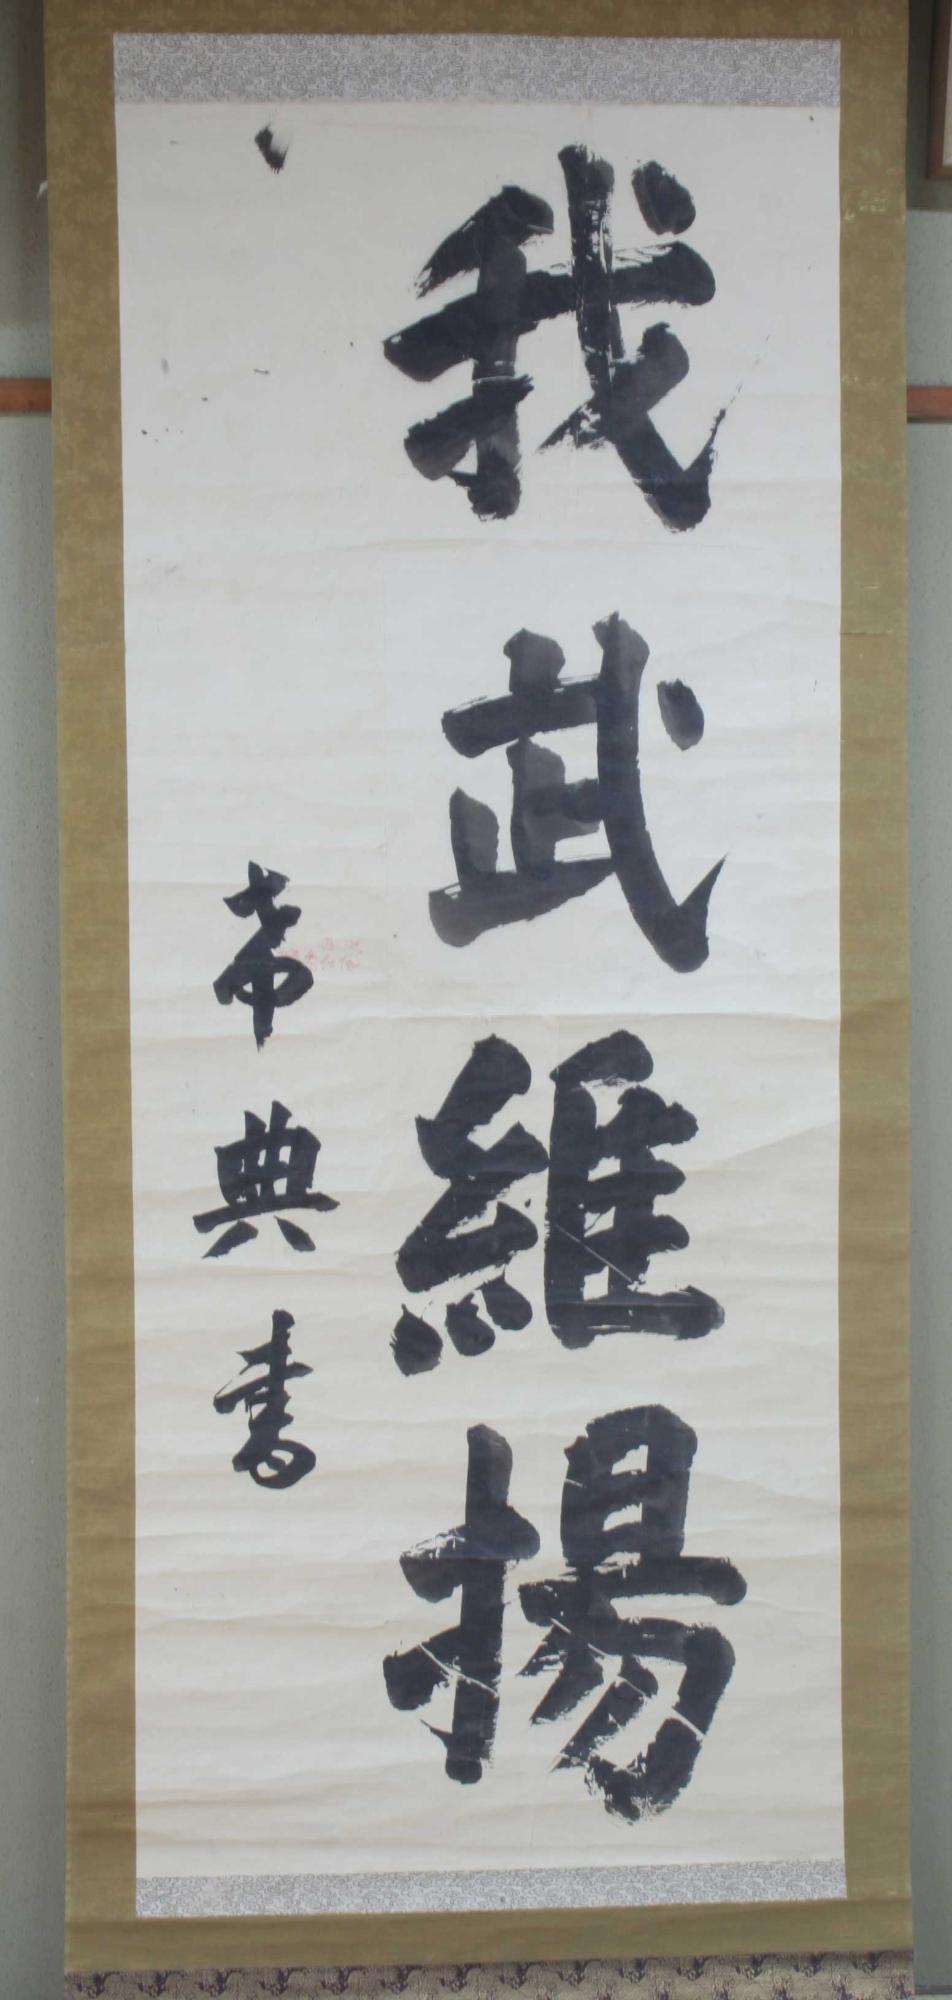 我武維揚
希典書